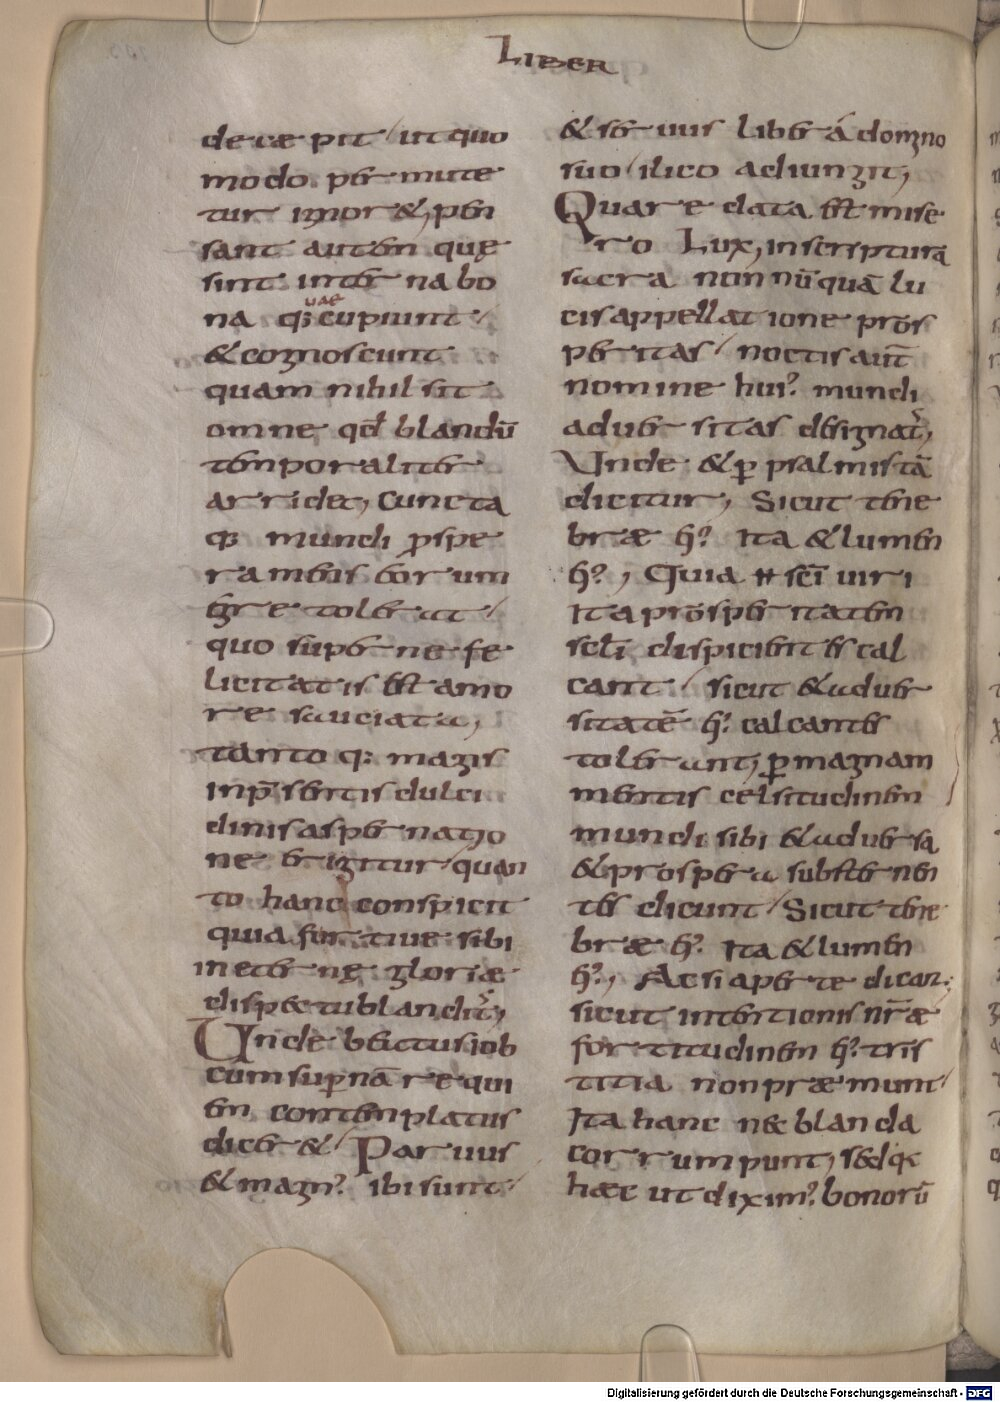 LIBER
decæpit / ut quo
modo permute
tur ignor&, pen
sant autem quę
sint interna bo
na q; cupiunt /
uae
& cognoscunt
quam nihil sit
omne qđ blandū
temporaliter
arridet, Cuncta
q; mundi pspe
ra mentis eorum
egre tolerat /
quo superne fe
licitatis est amo
re sauciata,
tanto q; magis
inpsentis dulci
dinis aspernatio
ne erigitur / quan
to hanc conspicit
quia furtive sibi
in eternę gloriæ
dispectu blandit,
Unde beatus iob
cum supnā requi
em contemplatus
dicer& / Parvus
& magn? ibi sunt /
& servus liber á domino
suo / ilico adiungit,
Quare data est mise
ro Lux, in scriptura
sacra non nūquā lu
cis appellatione pros
peritas / noctis aut̄
nomine hui? mundi
adversitas designat,
Unde & p psalmistā
dicitur, Sicut tene
bræ h? Ita & lumen
h?, Quia sc̄i viri
Ita prosperitatem
sc̄li dispicientes cal
cant / sicut & adver
sitatē h? calcantes
tolerant, p magnam
mentis celsitudinem
mundi sibi & adversa
& prospera substernen
tes dicunt / Sicut tene
bræ h? Ita & lumen
h?, Ac si aperte dican;
sicut intentionis nr̄æ
fortitudinem h? tris
titia non præmunt /
Ita hanc nec blanda
corrumpunt, sed q̄
hæc ut dixim? bonorū
Digitalisierung gefördert durch die Deutsche Forschungsgemeinschaft - DFG